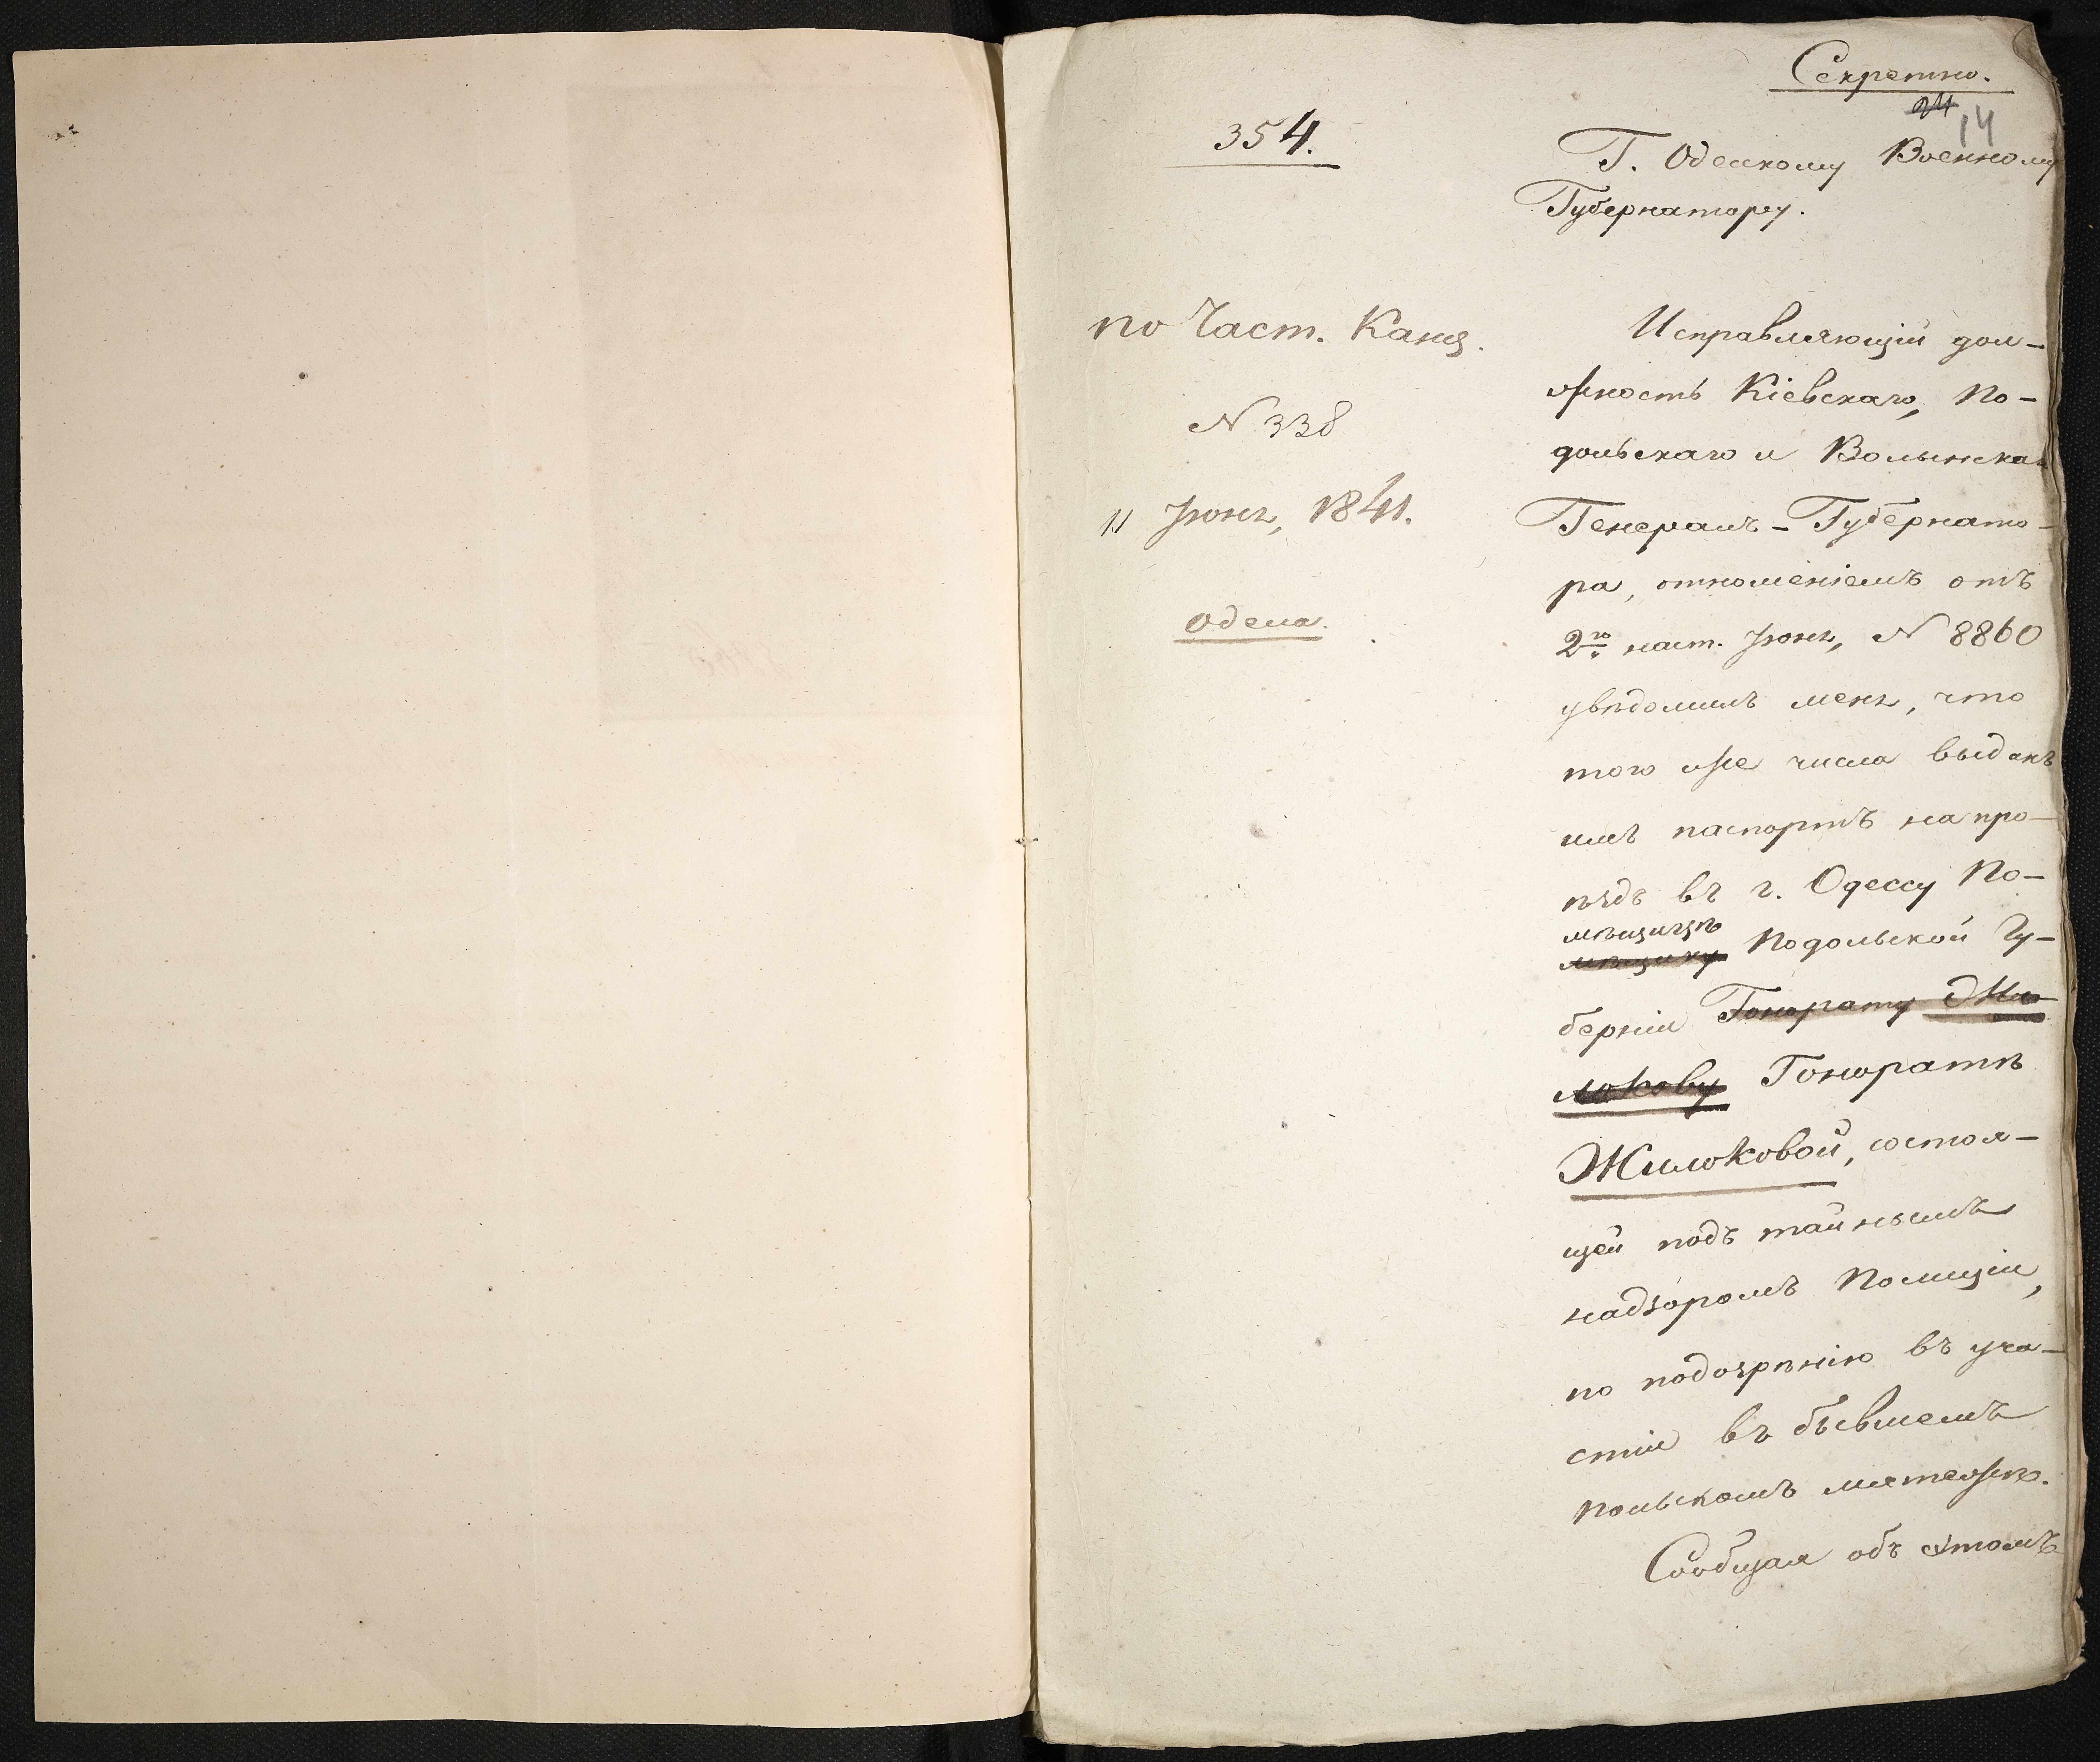 Секретно.
24
14
354.
Г. Одесскому Военному
Губернатору.
по Част. Канц.
N 338
11 Іюня, 1841.
Одесса.
Исправляющій дол-
жность Кіевскаго, По-
дольскаго и Волынска
Генералъ-Губернато-
ра, отношеніемъ отъ
2го наст. Іюня, N 8860
увѣдомилъ меня, что
того же числа выданъ
имъ паспортъ на про-
ѣздъ въ г. Одессу По-
мѣщицѣ
мѣщику Подольской Гу-
берніи Гонорату Жи-
люкову Гоноратѣ
Жилюковой, состоя-
щей подъ тайнымъ
надзоромъ Полиціи,
по подозрѣнію въ уча-
стіи въ бывшемъ
Польскомъ мятежѣ.
Сообщая объ этомъ